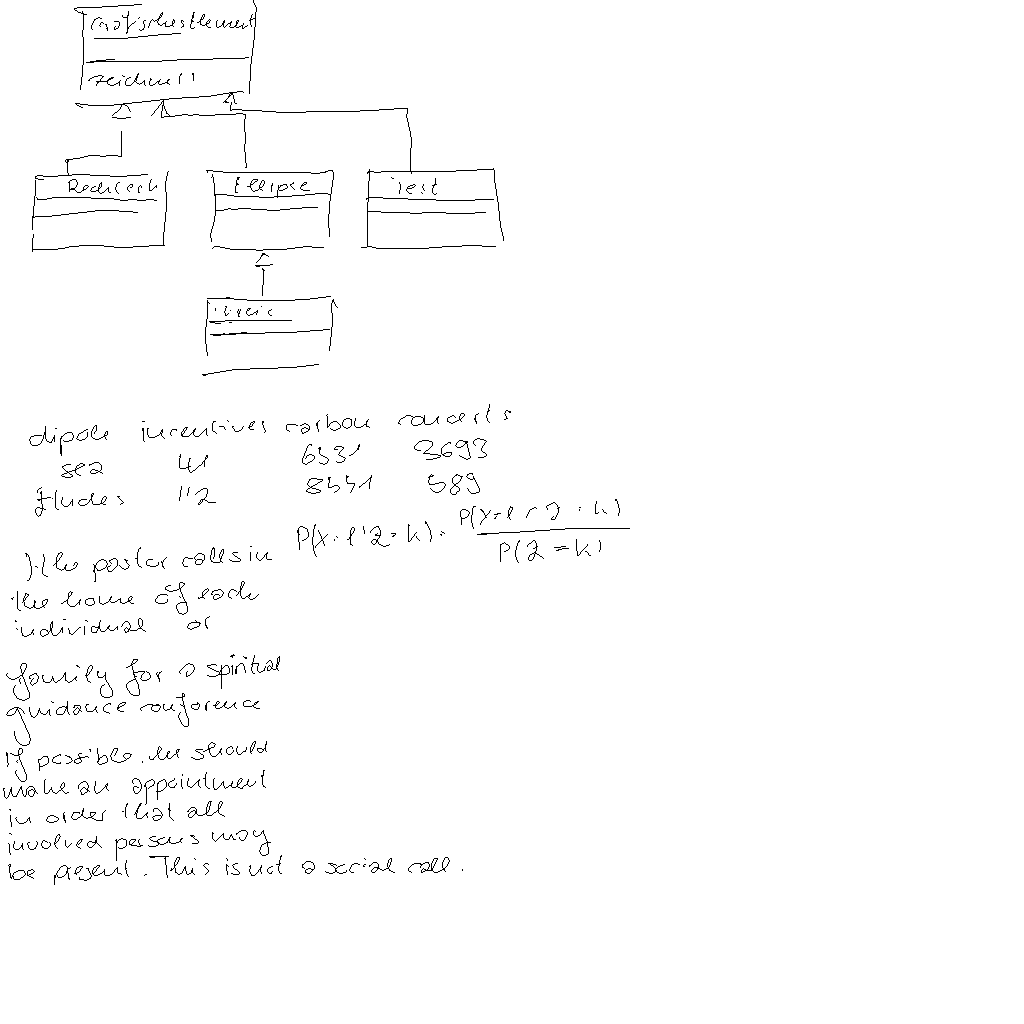 grafischesElement
zeichne()
Rechteck
Ellipse
Text
Kreis
dipole incentives carbon concerts
sea 41 6531 3693
Etudes 112 8551 589
P(X=l|Z=k)=P(X=l∩Z=k)/P(Z=k)
).the pastor calls in
the home of each
individual or
family for a spiritual
guidance conference
If possible, he should
make an appointment
in order that all
involved persons may
be present. This is not a social call.